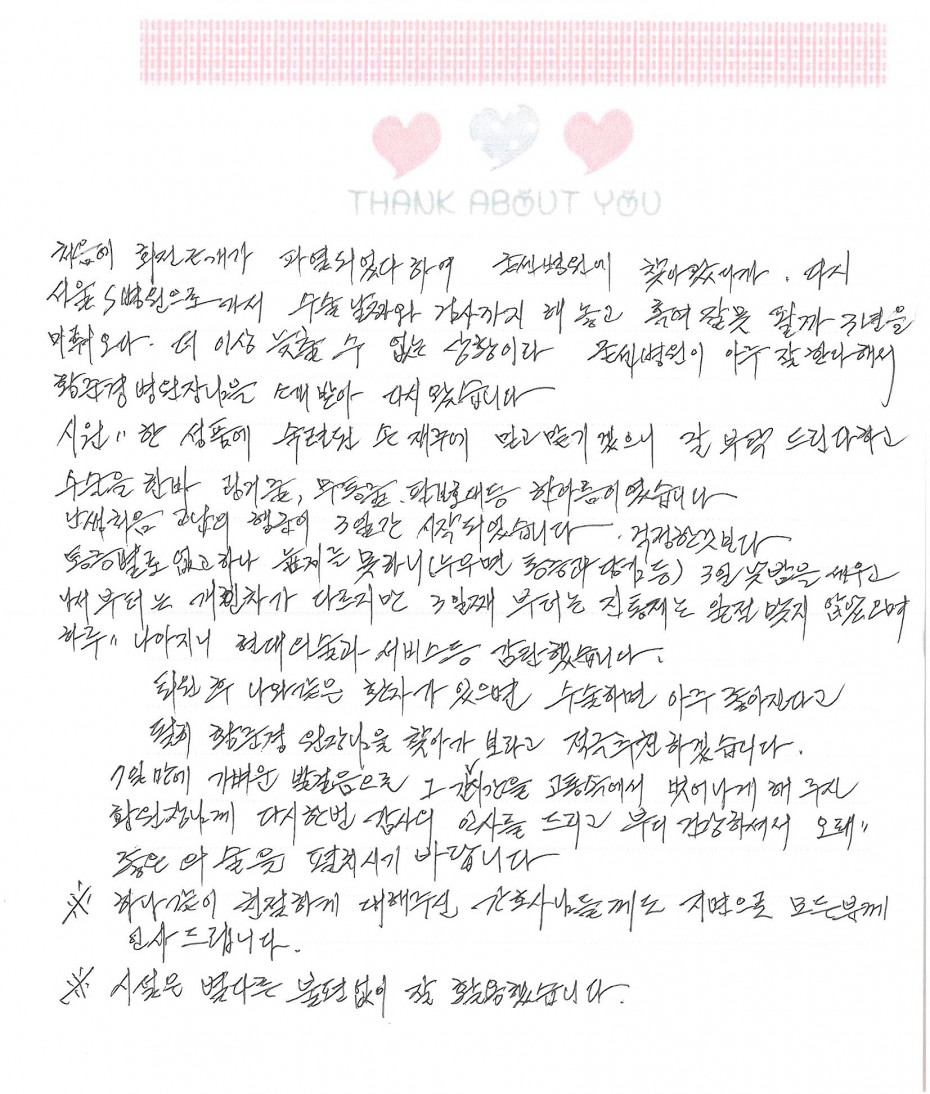 THANK ABOUT YOU
처음에 회전근개가 파열되었다 하여 본병원에 찾아왔는데. 다시
서울 S병원으로 가서 수술 날짜와 검사까지 해 놓고 혹여 잘못 될까 3년을
미뤄오다. 더 이상 늦출 수 없는 상황이라 병원이 아주 잘한다해서
병원장님을 소개받아 다시 왔습니다
시원〃한 성품에 숙련된 손재주에 믿고 맡기겠으니 잘 부탁 드린다하고
수술을 한바 링거줄, 무통줄, 팔보호대등 한아름이었습니다
난생처음 고난의 행군이 3일간 시작되었습니다. 걱정한것보다
통증별로 없고하나 눕지를 못하니(누우면 통증과 당김등) 3일 밤을 새우고
나서부터는 개인차가 다르지만 3일째 부터는 진통제는 완전 맞지 않았으며
하루〃 나아지니 현대의술과 서비스등 감탄했습니다.
퇴원 후 나와같은 환자가 있으면 수술하면 아주 좋아진다고
필히 원장님을 찾아가 보라고 적극추천하겠습니다.
7일만에 가벼운 발걸음으로 그 긴시간을 고통속에서 벗어나게 해 주신
황원장님께 다시한번 감사의 인사를 드리고 부디 건강하셔서 오래〃
좋은 의술을 펼치시기 바랍니다
※ 하나같이 친절하게 대해주신 간호사님들께도 지면으로 모든분께
인사 드립니다.
※ 시설은 별다른 불편없이 잘 활용했습니다.